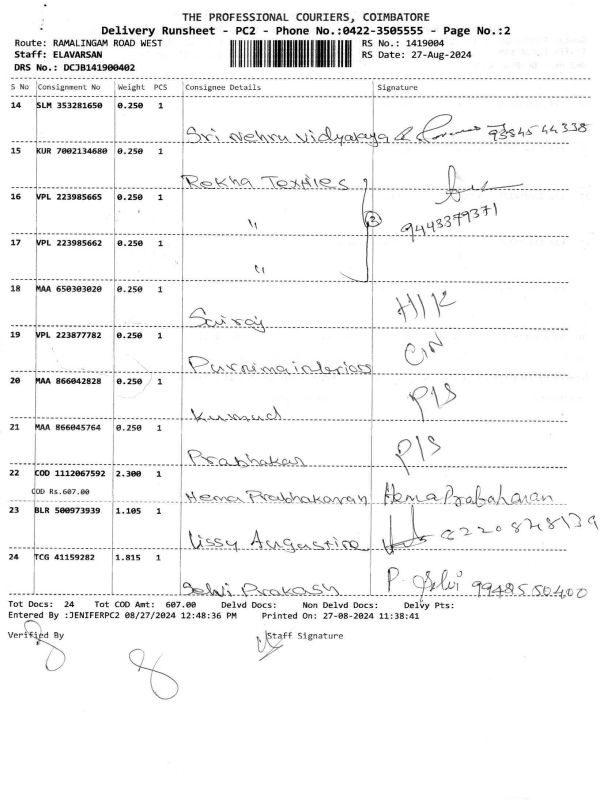 THE PROFESSIONAL COURIERS, COIMBATORE
Delivery Runsheet - PC2 - Phone No.:0422-3505555 - Page No.:2
Route: RAMALINGAM ROAD WEST RS No.: 1419004
Staff: ELAVARSAN RS Date: 27-Aug-2024
DRS No.: DCJB141900402
S No Consignment No Weight PCS Consignee Details Signature
14 SLM 353281650 0.250 1
Sri Nehru Vidyalaya
15 KUR 7002134680 0.250 1
Rekha Textiles
16 VPL 223985665 0.250 1
" 2 9443379371
17 VPL 223985662 0.250 1
"
18 MAA 650303020 0.250 1
Sairaj H/K
19 VPL 223877782 0.250 1
Purnima interiors C/N
20 MAA 866042828 0.250 1
Kumud P/S
21 MAA 866045764 0.250 1
Prabhakar P/S
22 COD 1112067592 2.300 1
COD Rs.607.00
Hema Prabhakaran Hema Prabaharan
23 BLR 500973939 1.105 1
Lissy Augastine
24 TCG 41159282 1.815 1
Selvi Prakash P. Selvi
Tot Docs: 24 Tot COD Amt: 607.00 Delvd Docs: Non Delvd Docs: Delvy Pts:
Entered By :JENIFERPC2 08/27/2024 12:48:36 PM Printed On: 27-08-2024 11:38:41
Verified By Staff Signature